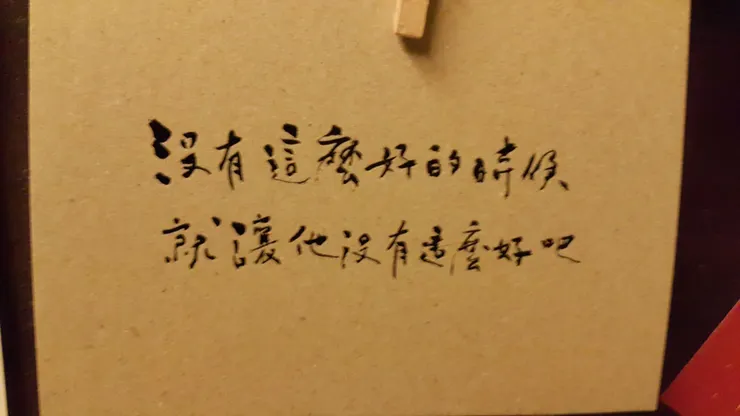 沒有這麼好的時候
就讓他沒有這麼好吧